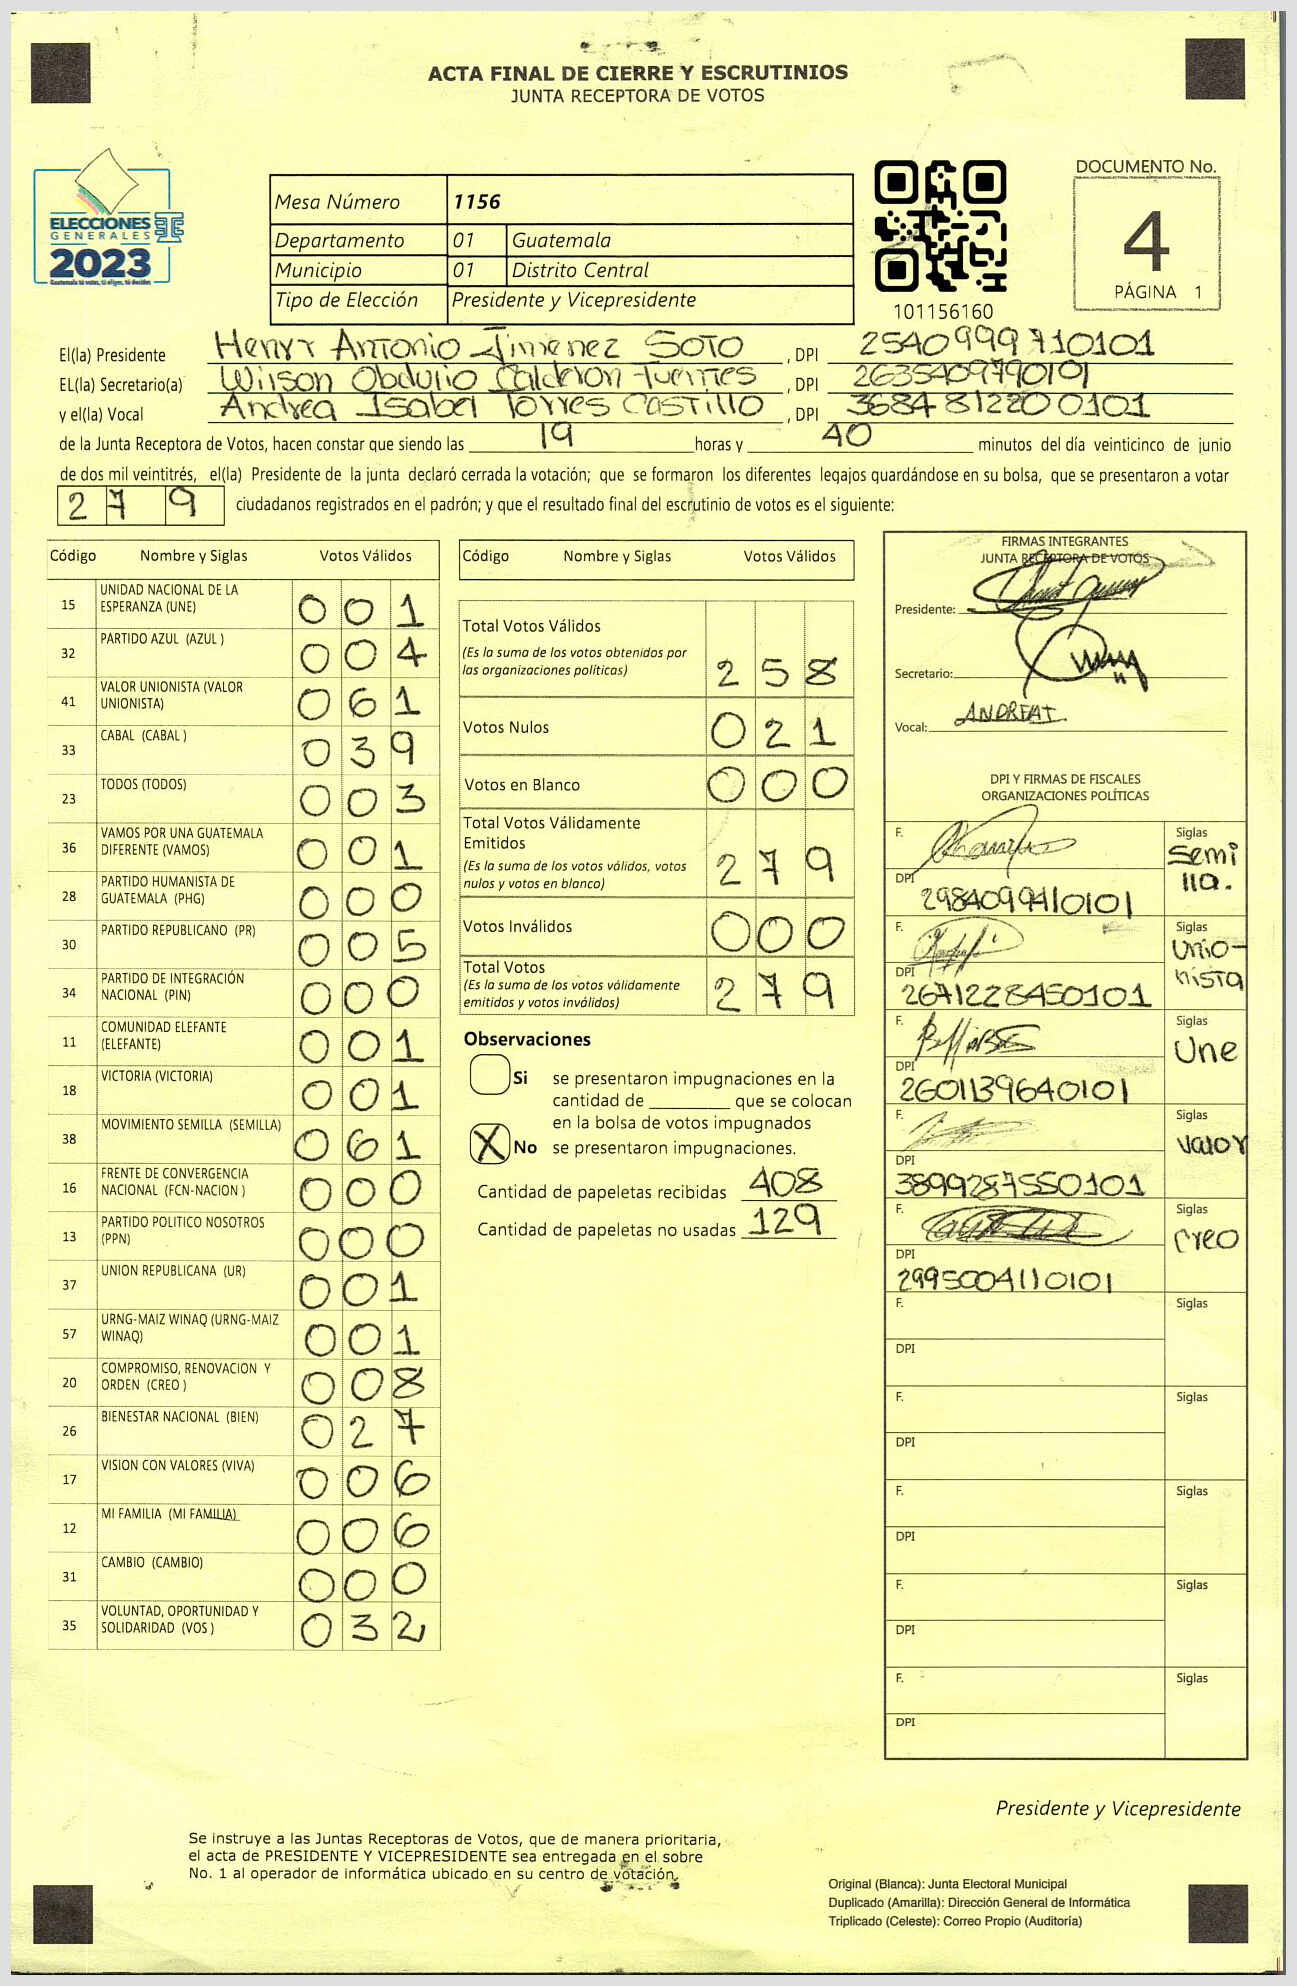 ACTA FINAL DE CIERRE Y ESCRUTINIOS
JUNTA RECEPTORA DE VOTOS
ELECCIONES
GENERALES
2023
Guatemala tú votas, tú eliges, tú decides
Mesa Número 1156
Departamento 01 Guatemala
Municipio 01 Distrito Central
Tipo de Elección Presidente y Vicepresidente
101156160
DOCUMENTO No.
4
PÁGINA 1
El(la) Presidente Henry Antonio Jimenez Soto , DPI 2540999710101
EL(la) Secretario(a) Wilson Obdulio Calderon Fuentes , DPI 2635409790101
y el(la) Vocal Andrea Isabel Torres Castillo , DPI 3684812200101
de la Junta Receptora de Votos, hacen constar que siendo las 19 horas y 40 minutos del día veinticinco de junio
de dos mil veintitrés, el(la) Presidente de la junta declaró cerrada la votación; que se formaron los diferentes legajos guardándose en su bolsa, que se presentaron a votar
279 ciudadanos registrados en el padrón; y que el resultado final del escrutinio de votos es el siguiente:
Código Nombre y Siglas Votos Válidos
15 UNIDAD NACIONAL DE LA
ESPERANZA (UNE) 001
32 PARTIDO AZUL (AZUL ) 004
41 VALOR UNIONISTA (VALOR
UNIONISTA) 061
33 CABAL (CABAL ) 039
23 TODOS (TODOS) 003
36 VAMOS POR UNA GUATEMALA
DIFERENTE (VAMOS) 001
28 PARTIDO HUMANISTA DE
GUATEMALA (PHG) 000
30 PARTIDO REPUBLICANO (PR) 005
34 PARTIDO DE INTEGRACIÓN
NACIONAL (PIN) 000
11 COMUNIDAD ELEFANTE
(ELEFANTE) 001
18 VICTORIA (VICTORIA) 001
38 MOVIMIENTO SEMILLA (SEMILLA) 061
16 FRENTE DE CONVERGENCIA
NACIONAL (FCN-NACION ) 000
13 PARTIDO POLITICO NOSOTROS
(PPN) 000
37 UNION REPUBLICANA (UR) 001
57 URNG-MAIZ WINAQ (URNG-MAIZ
WINAQ) 001
20 COMPROMISO, RENOVACION Y
ORDEN (CREO ) 008
26 BIENESTAR NACIONAL (BIEN) 027
17 VISION CON VALORES (VIVA) 006
12 MI FAMILIA (MI FAMILIA) 006
31 CAMBIO (CAMBIO) 000
35 VOLUNTAD, OPORTUNIDAD Y
SOLIDARIDAD (VOS ) 032
Código Nombre y Siglas Votos Válidos
Total Votos Válidos
(Es la suma de los votos obtenidos por
las organizaciones políticas) 258
Votos Nulos 021
Votos en Blanco 000
Total Votos Válidamente
Emitidos
(Es la suma de los votos válidos, votos
nulos y votos en blanco) 279
Votos Inválidos 000
Total Votos
(Es la suma de los votos válidamente
emitidos y votos inválidos) 279
Observaciones
Si se presentaron impugnaciones en la
cantidad de ________ que se colocan
en la bolsa de votos impugnados
X No se presentaron impugnaciones.
Cantidad de papeletas recibidas 408
Cantidad de papeletas no usadas 129
FIRMAS INTEGRANTES
JUNTA RECEPTORA DE VOTOS
Presidente:
Secretario:
Vocal: ANDREAT
DPI Y FIRMAS DE FISCALES
ORGANIZACIONES POLÍTICAS
F. Siglas
Semi
lla.
DPI
2984099410101
F. Siglas
Unio-
nista
DPI
2671228450101
F. Siglas
Une
DPI
2601139640101
F. Siglas
Valor
DPI
3899287550101
F. Siglas
Creo
DPI
2995004110101
F. Siglas
DPI
F. Siglas
DPI
F. Siglas
DPI
F. Siglas
DPI
F. Siglas
DPI
Presidente y Vicepresidente
Se instruye a las Juntas Receptoras de Votos, que de manera prioritaria,
el acta de PRESIDENTE Y VICEPRESIDENTE sea entregada en el sobre
No. 1 al operador de informática ubicado en su centro de votación.
Original (Blanca): Junta Electoral Municipal
Duplicado (Amarilla): Dirección General de Informática
Triplicado (Celeste): Correo Propio (Auditoría)